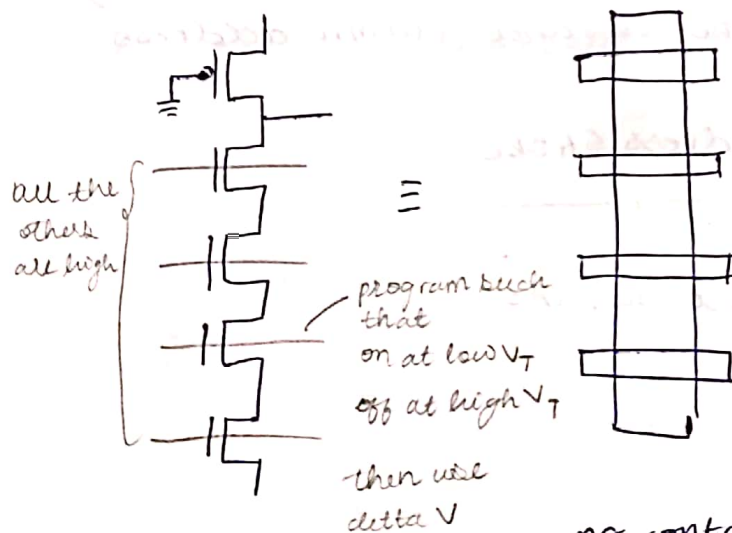 all the
others
are high
≡
program such
that
on at low V_T
off at high V_T
then use
delta V
no